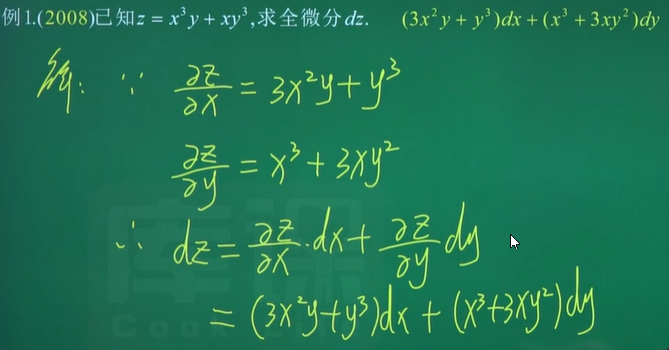 例1.(2008)已知z = x³y + xy³,求全微分dz. (3x²y + y³)dx + (x³ + 3xy²)dy
解: ∵ ∂z/∂x = 3x²y + y³
∂z/∂y = x³ + 3xy²
∴ dz = ∂z/∂x · dx + ∂z/∂y dy
= (3x²y + y³)dx + (x³ + 3xy²)dy
库课